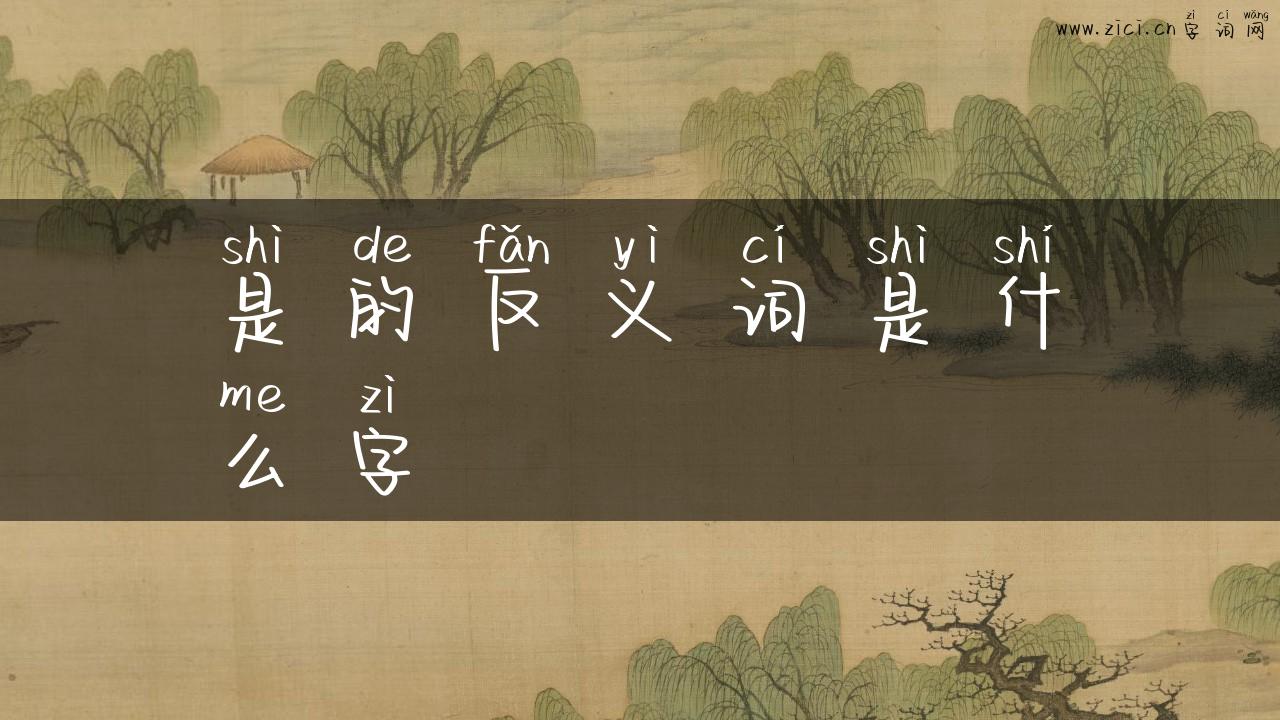 zì cí wǎng
www.zici.cn 字词网
shì de fǎn yì cí shì shí
是的反义词是什
me zì
么字